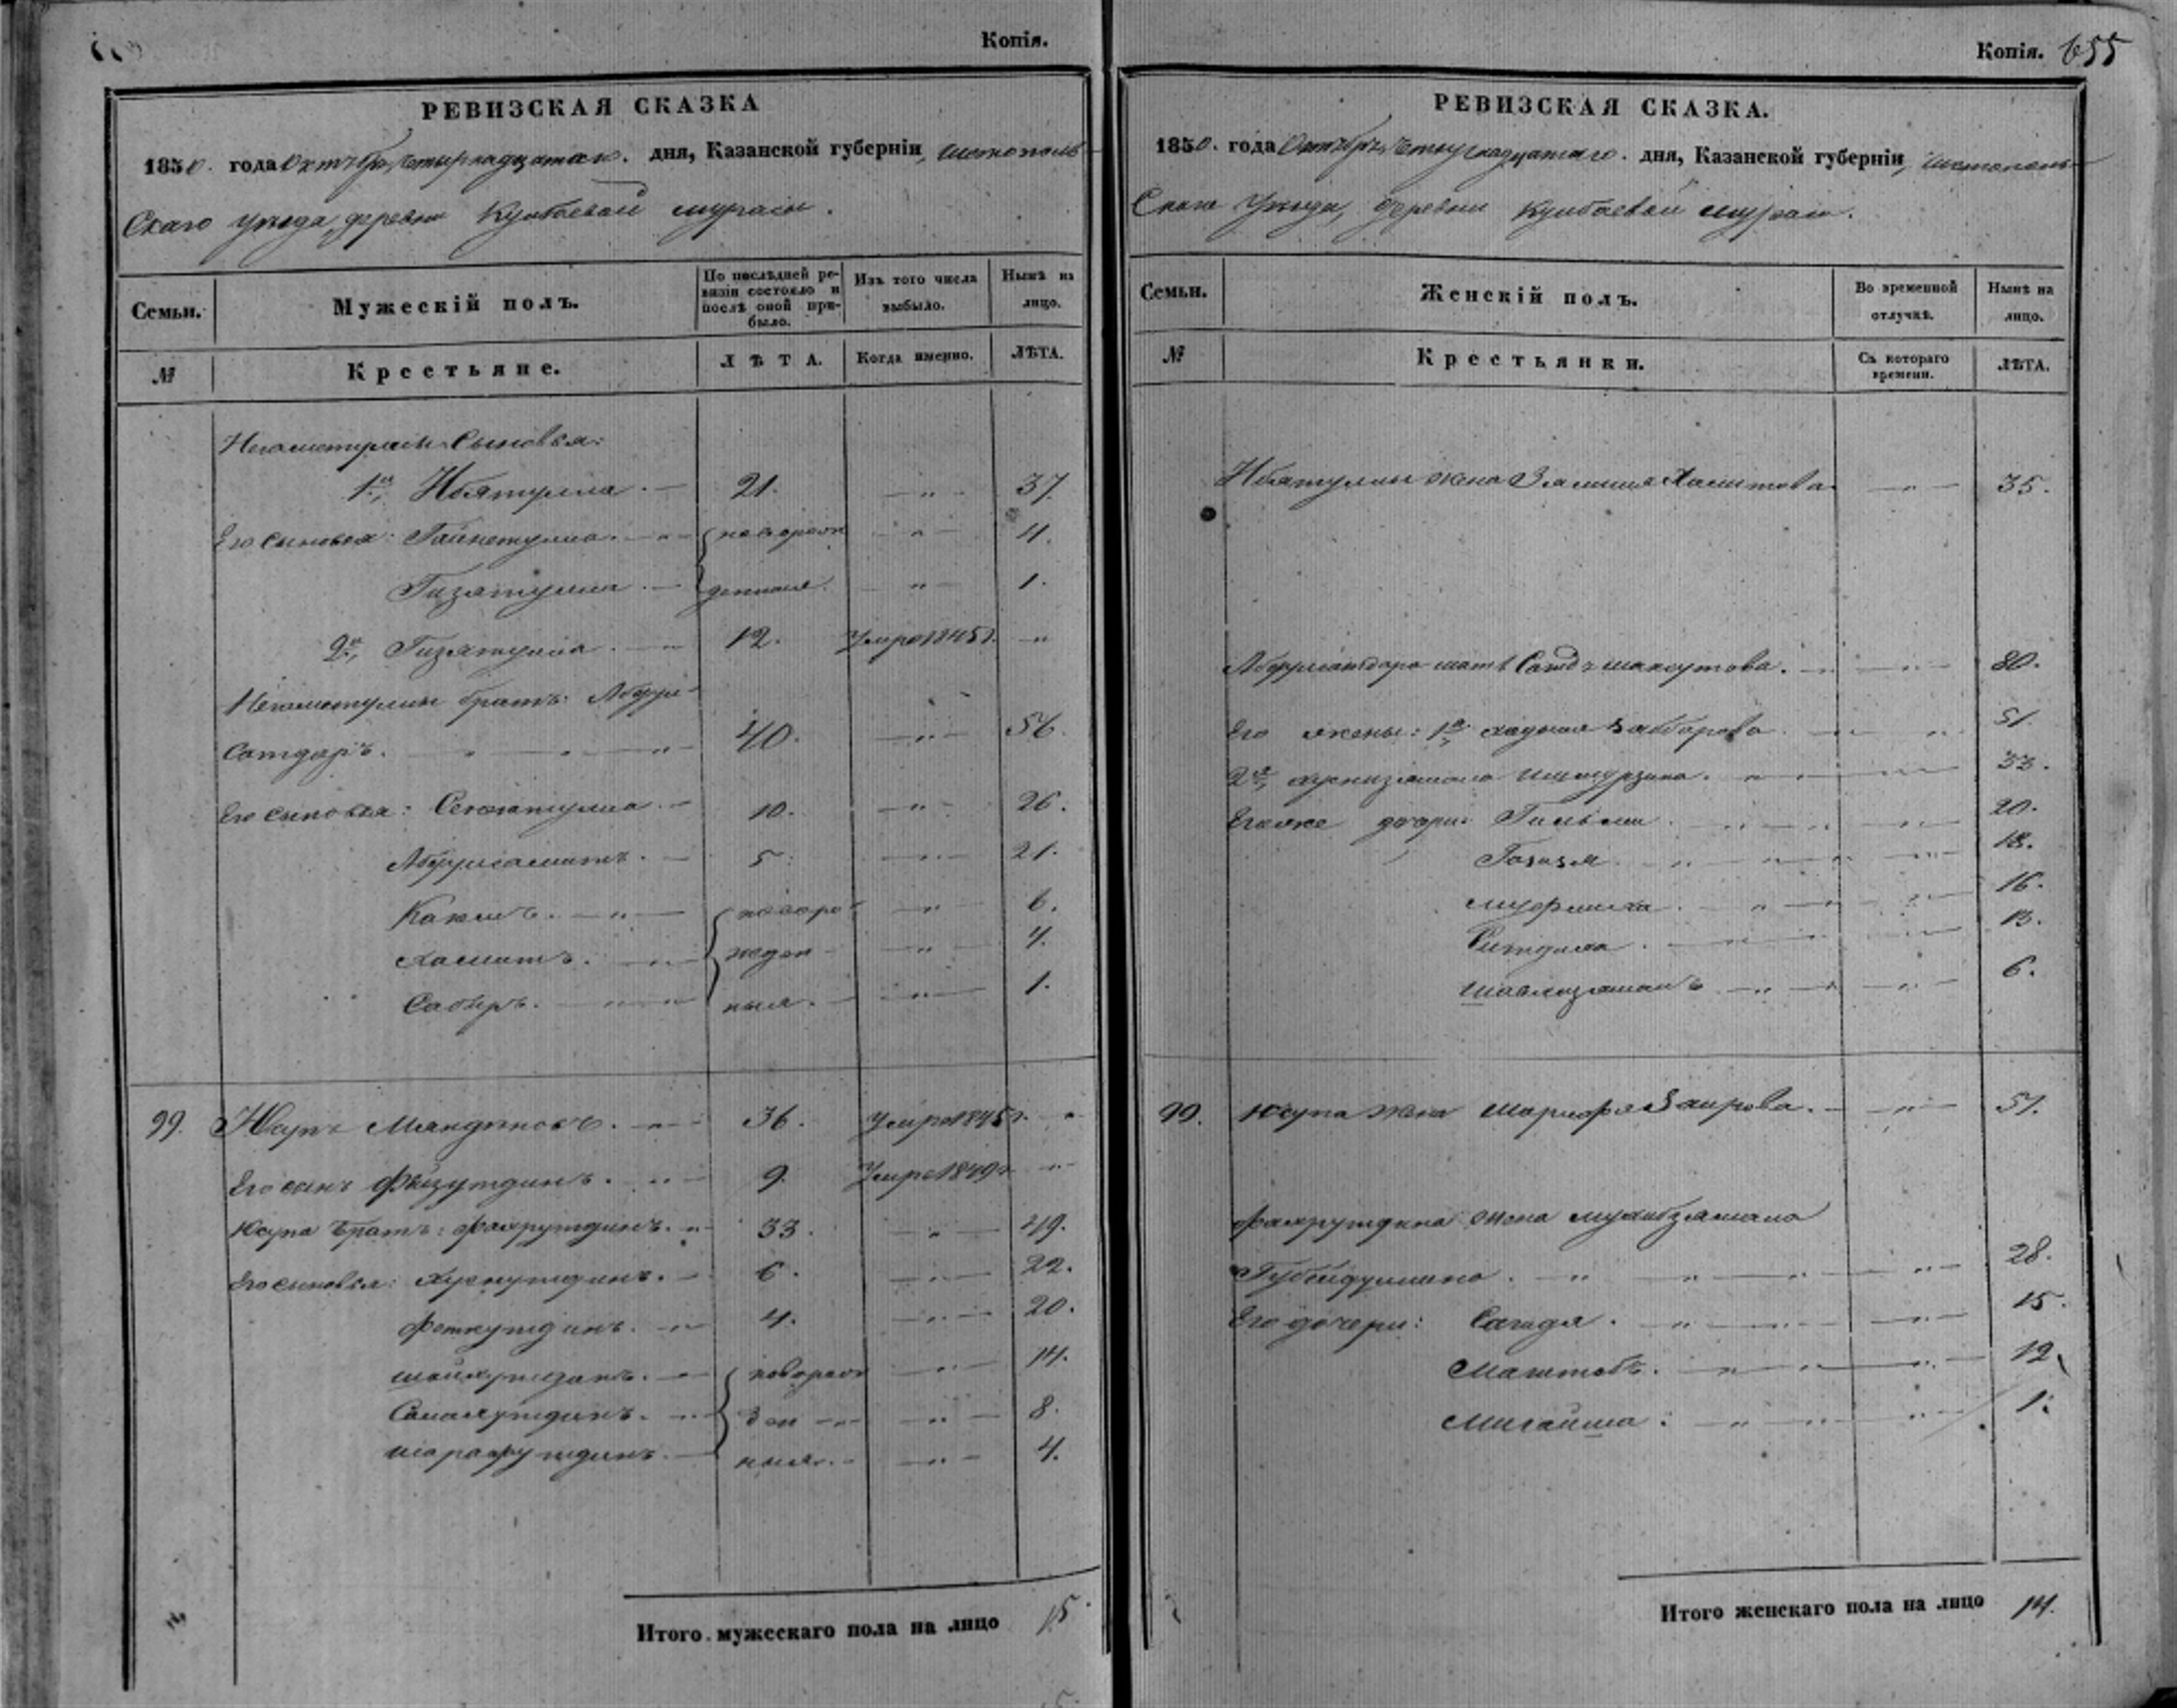 Копія.
РЕВИЗСКАЯ СКАЗКА
1850. года Октября четырнадцатаго. дня, Казанской губерніи, чистополь-
скаго уѣзда, деревни Кулбаевой мурасы.
Семьи.
Мужескій полъ.
По послѣдней ре-
визіи состояло и
послѣ оной при-
было.
Изъ того числа
выбыло.
Нынѣ на
лицо.
№
Крестьяне.
ЛѢТА.
Когда именно.
ЛѢТА.
Негаметуллы сыновья:
1й, Ибятулла. — 21. — „ — 37.
Его сыновья: Гайнетулла. — „ — новорож „ — 4.
Гизятулла. — денныя. „ — 1.
2й, Гизятулла. — „ 12. Умре 1845г. „
Негаметуллы братъ: Абдул-
сатдаръ. „ „ „ 40. — „ — 56.
Его сыновья: — 10. — „ — 26.
Абдулсаматъ. — 5. — „ — 21.
Какимъ. — „ — новоро- — „ — 6.
Хаматъ. — „ — жден- — „ 4.
Сабиръ. — „ — ныя. — „ — 1.
99. Юсупъ Мяндиновъ. — „ — 36. Умре 1845г. „
Его сынъ Файзутдинъ. „ — 9. Умре 1849г „
Юсупа братъ: Фахрутдинъ. „ 33. — „ — 49.
Его сыновья: Хуснутдинъ. — 6. — „ — 22.
Фаткутдинъ. — „ 4. — „ — 20.
шайхутдинъ. — „ новорож — „ — 14.
Самахутдинъ. „ ден — „ — „ — 8.
шарафутдинъ. — ныя. — „ — 4.
Итого мужескаго пола на лицо 15.
Копія. 655
РЕВИЗСКАЯ СКАЗКА.
1850. года Октября четырнадцатаго. дня, Казанской губерніи, чистополь-
скаго Уѣзда, деревни Кулбаевой мурасы.
Семьи.
Женскій полъ.
Во временной
отлучкѣ.
Нынѣ на
лицо.
№
Крестьянки.
Съ котораго
времени.
ЛѢТА.
Ибятуллы жена Хамитова. — „ — 35.
Абдулсатдара мать Максутова. — „ — 80.
Его жены: 1я, Хадыча Забборова. „ „ 51.
2я, Хуснизямала Ишмурзина. „ „ 33.
Его же дочери: Гильми. „ — „ — „ 20.
Газизя. „ — „ — „ 18.
— „ — „ 16.
Ситдика. — „ — „ 13.
— „ — „ 6.
99. Юсупа жена Шарифа Заирова. — „ — 51.
Фахрутдина жена мухибзямала
Губейдуллина. — „ — „ — „ — „ — 28.
Его дочери: Сагидя. — „ — „ — „ — 15.
Маштобъ. — „ — „ — „ — 12.
Мигайша. — „ — „ — „ 1.
Итого женскаго пола на лицо 14.